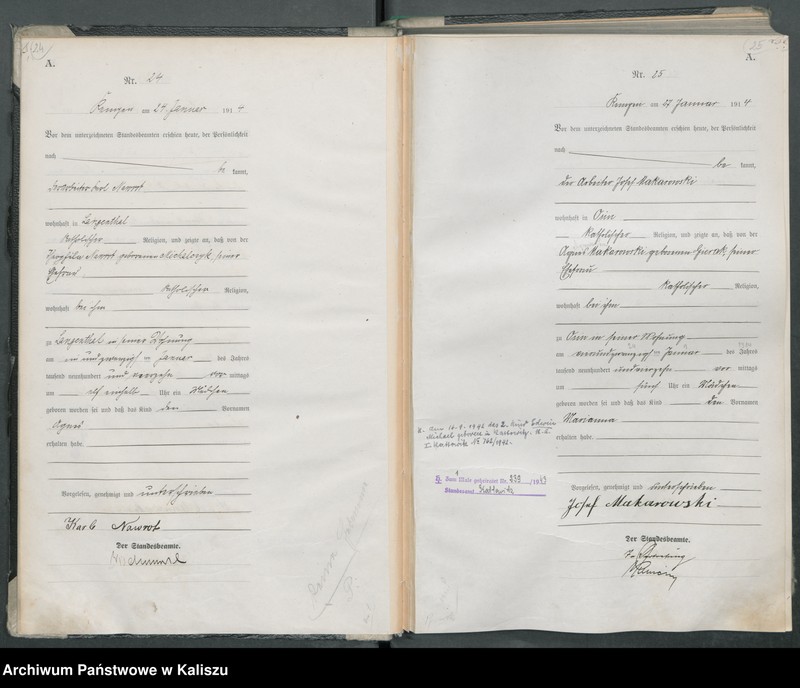 A.
Nr. 24
Kempen am 24 Januar 1914
Vor dem unterzeichneten Standesbeamten erschien heute, der Persönlichkeit
nach
be kannt,
Karl Nawrot
wohnhaft in
katholischer Religion, und zeigte an, daß von der
Nawrot geborenen seiner
Ehefrau
katholischer Religion,
wohnhaft bei ihm
zu in seiner Wohnung
am Januar des Jahres
tausend neunhundert und vierzehn vor mittags
am elf einhalb Uhr ein Mädchen
geboren worden sei und daß das Kind den Vornamen
Agnes
erhalten habe.
Vorgelesen, genehmigt und unterschrieben
Karl Nawrot
Der Standesbeamte.
25
A.
Nr. 25
Kempen am 27 Januar 1914
Vor dem unterzeichneten Standesbeamten erschien heute, der Persönlichkeit
nach
be kannt,
der Arbeiter Josef Makarowski
wohnhaft in Osin
katholischer Religion, und zeigte an, daß von der
Agnes Makarowski geborenen seiner
Ehefrau
katholischer Religion,
wohnhaft bei ihm
zu Osin in seiner Wohnung
am Januar des Jahres
tausend neunhundert und vierzehn vor mittags
am fünf Uhr ein Mädchen
geboren worden sei und daß das Kind den Vornamen
Marianna
erhalten habe.
Vorgelesen, genehmigt und unterschrieben
Josef Makarowski
Der Standesbeamte.
Am 16.9.1942 das 2. Kind Edwin
Michael geboren in Kattowitz. St. A.
I. Kattowitz Nr 762/1942.
Zum 1 Male geheiratet Nr. 939/1943
Standesamt Kattowitz
Archiwum Państwowe w Kaliszu